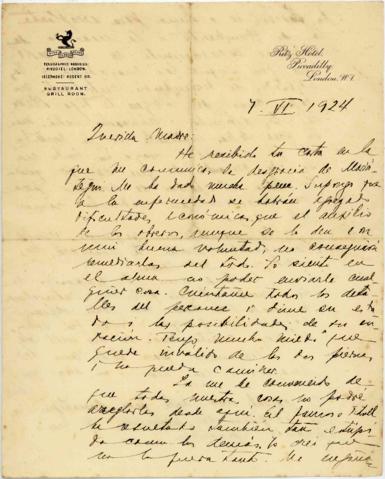 TELEGRAPHIC ADDRESS:
LONDON.
TELEPHONE: REGENT
RESTAURANT
GRILL ROOM.
Ritz Hotel.
Piccadilly
London, W.1.
7 VI 1924
Querida
He recibido tu carta en la
que me comunicas la desgracia de
me ha dado mucha pena. Supongo que
a la enfermedad se habrán
dificultades económicas que el auxilio
de los obreros, aunque se lo den con
muy buena voluntad, no conseguirá
remediarlas del todo. Yo siento en
el alma no poder enviarle cual
quier cosa. Cuéntame todos los deta
lles del percance y dime su esta
do y las posibilidades de su cu
ración. Tengo mucho miedo que
quede inválido de las dos piernas
y no pueda caminar.
Ya me he convencido de
que todas nuestras cosas no podré
arreglarlas desde aquí. El famoso
ha resultado también tan estúpi
do como los demás. Yo creí que
no lo fuera tanto. Me